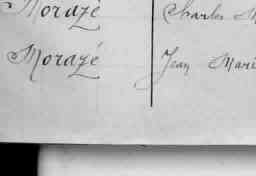 Morazé Charles M
Morazé Jean Mari